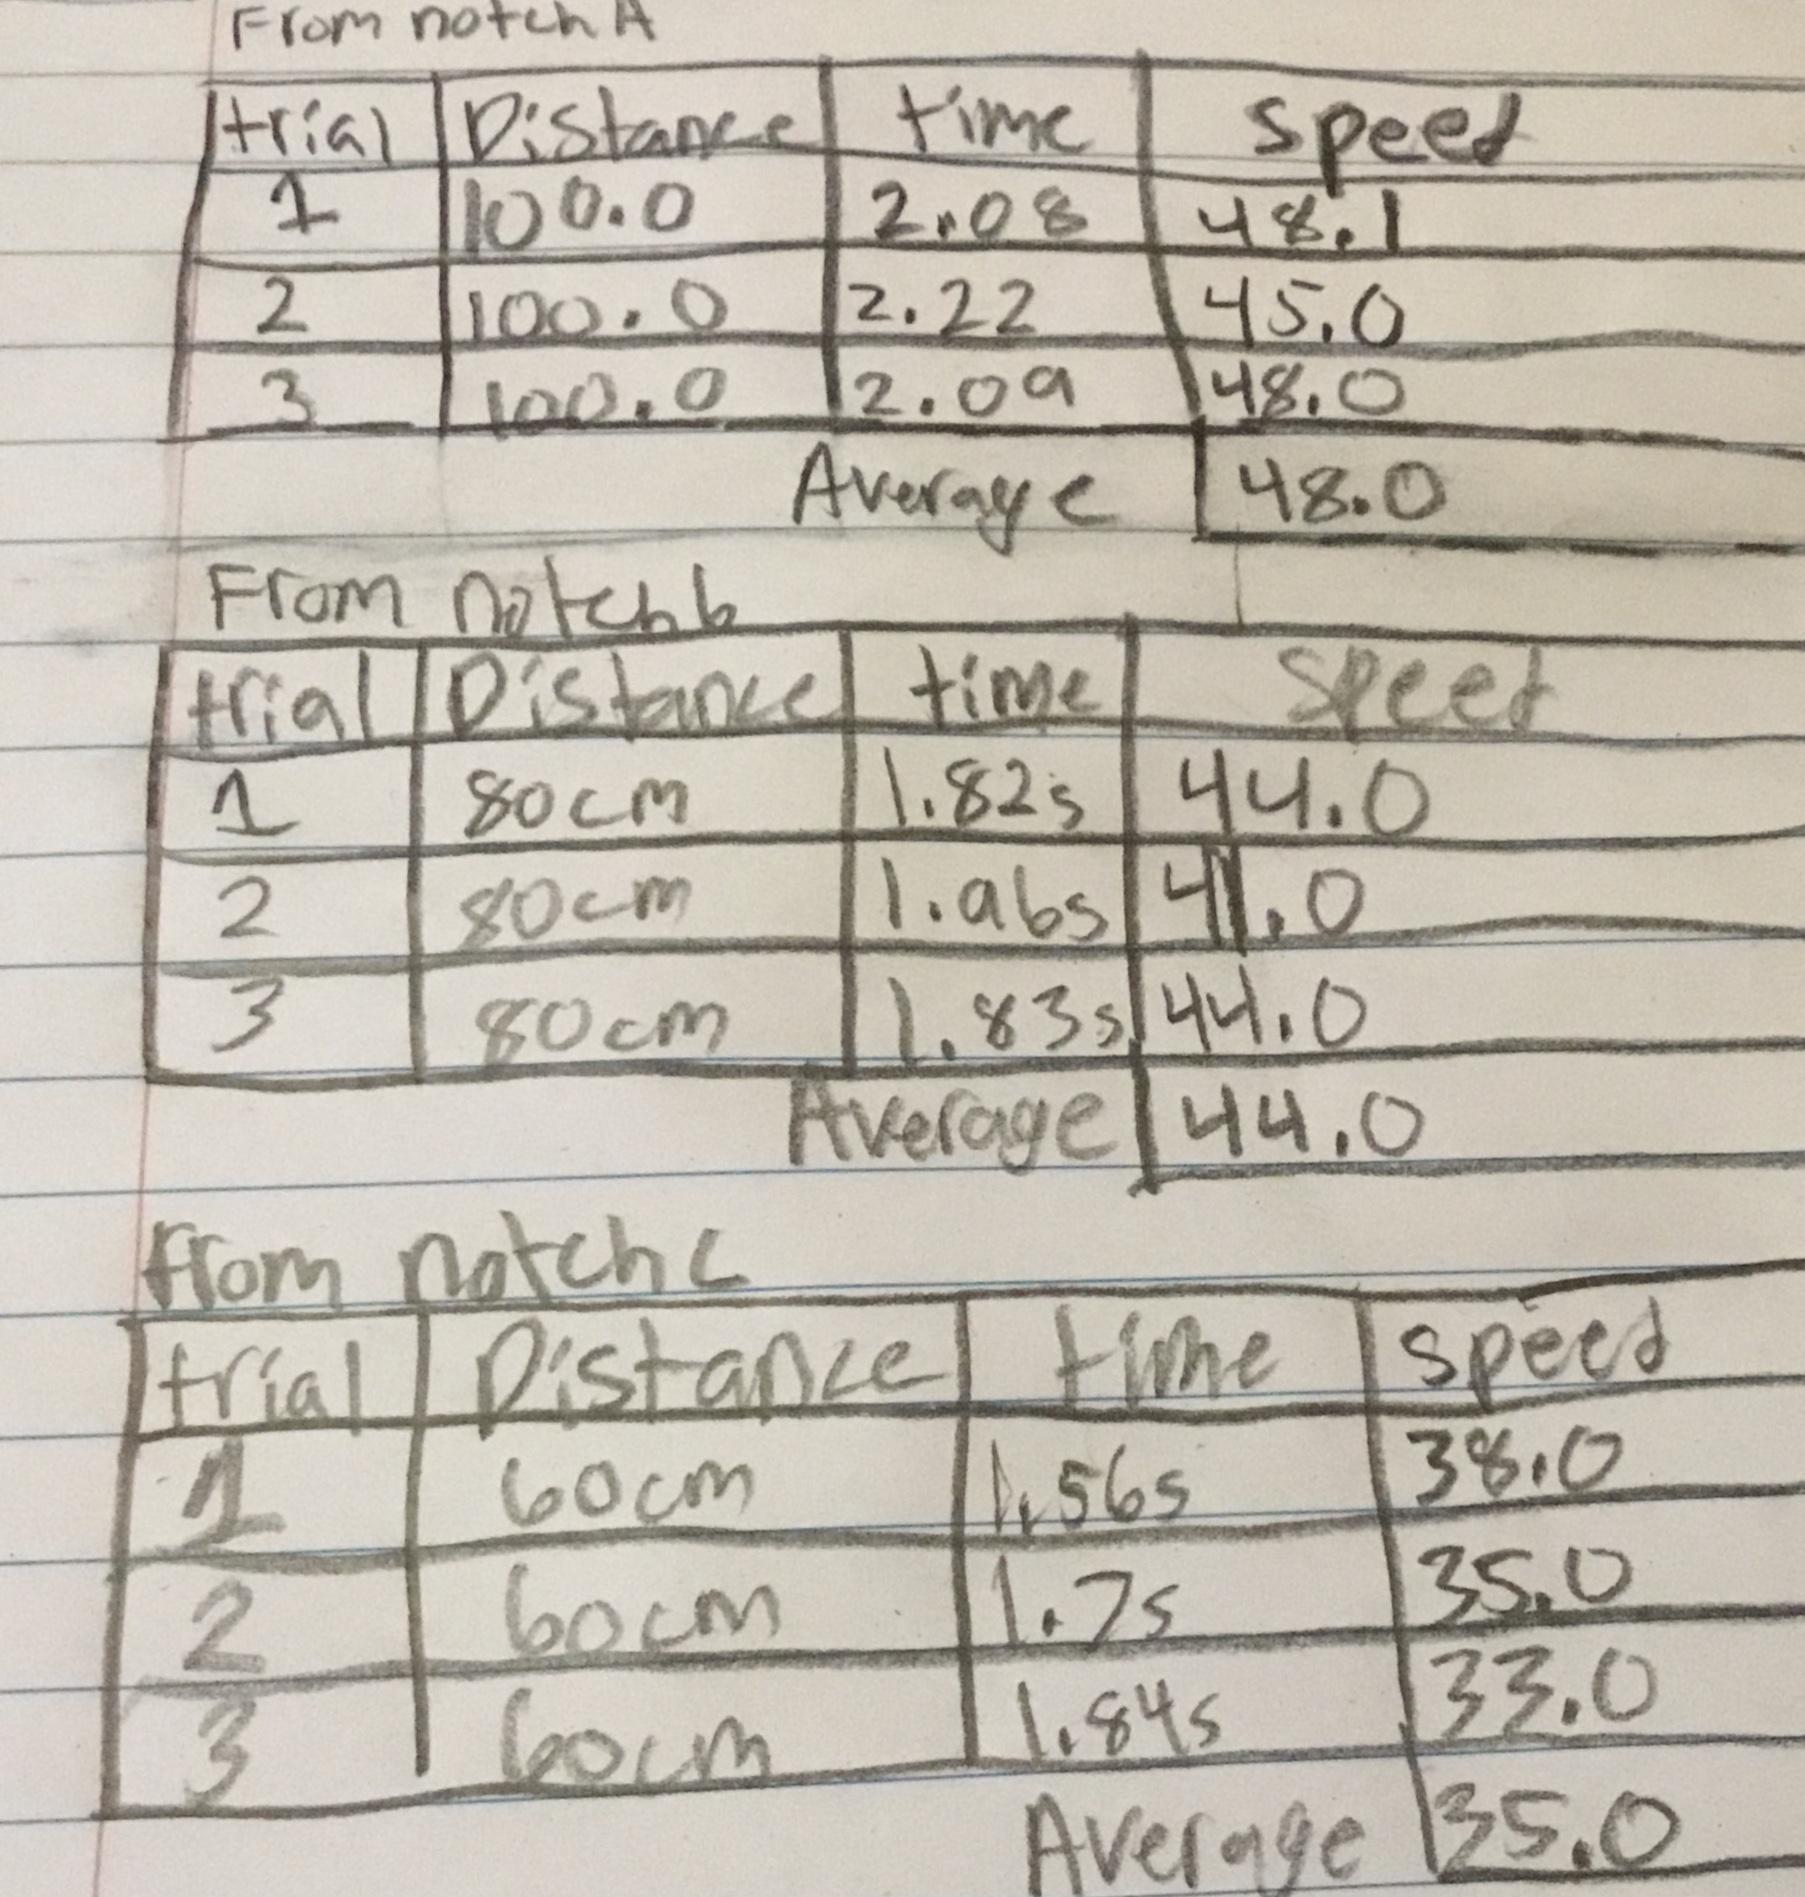 From notch A
trial Distance time speed
1 100.0 2.08 48.1
2 100.0 2.22 45.0
3 100.0 2.09 48.0
Average 48.0
From notch b
trial Distance time speed
1 80cm 1.82s 44.0
2 80cm 1.96s 41.0
3 80cm 1.83s 44.0
Average 44.0
From notch c
trial Distance time speed
1 60cm 1.56s 38.0
2 60cm 1.7s 35.0
3 60cm 1.84s 33.0
Average 35.0